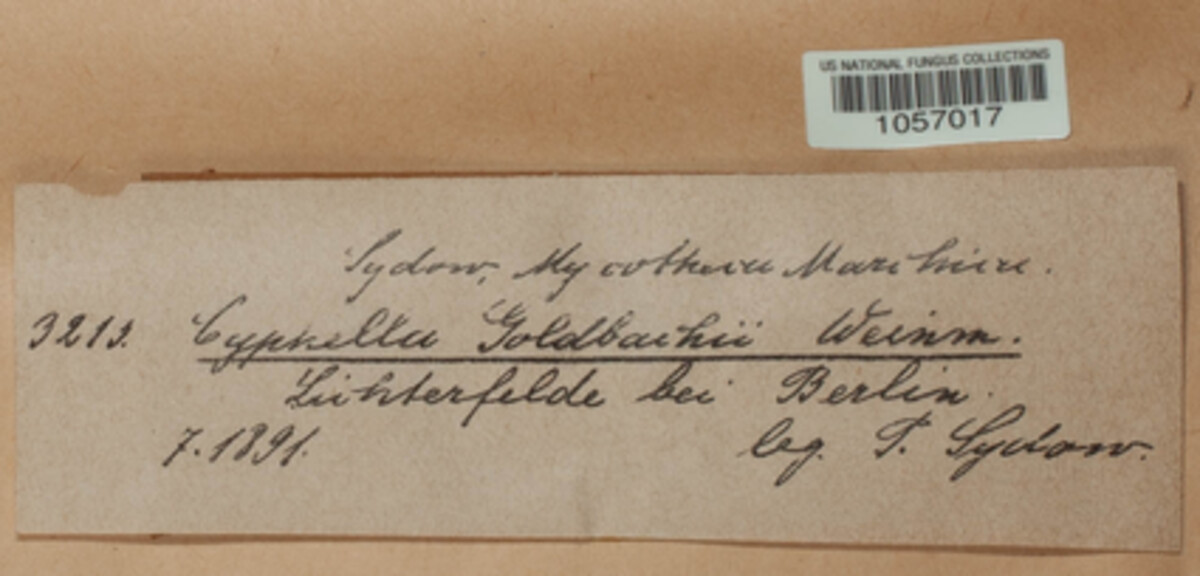 US NATIONAL FUNGUS COLLECTIONS
1057017
Sydow, Mycotheca Marchica.
3213. Cyphella Goldbachii Weinm.
Lichterfelde bei Berlin.
7. 1891. leg. P. Sydow.